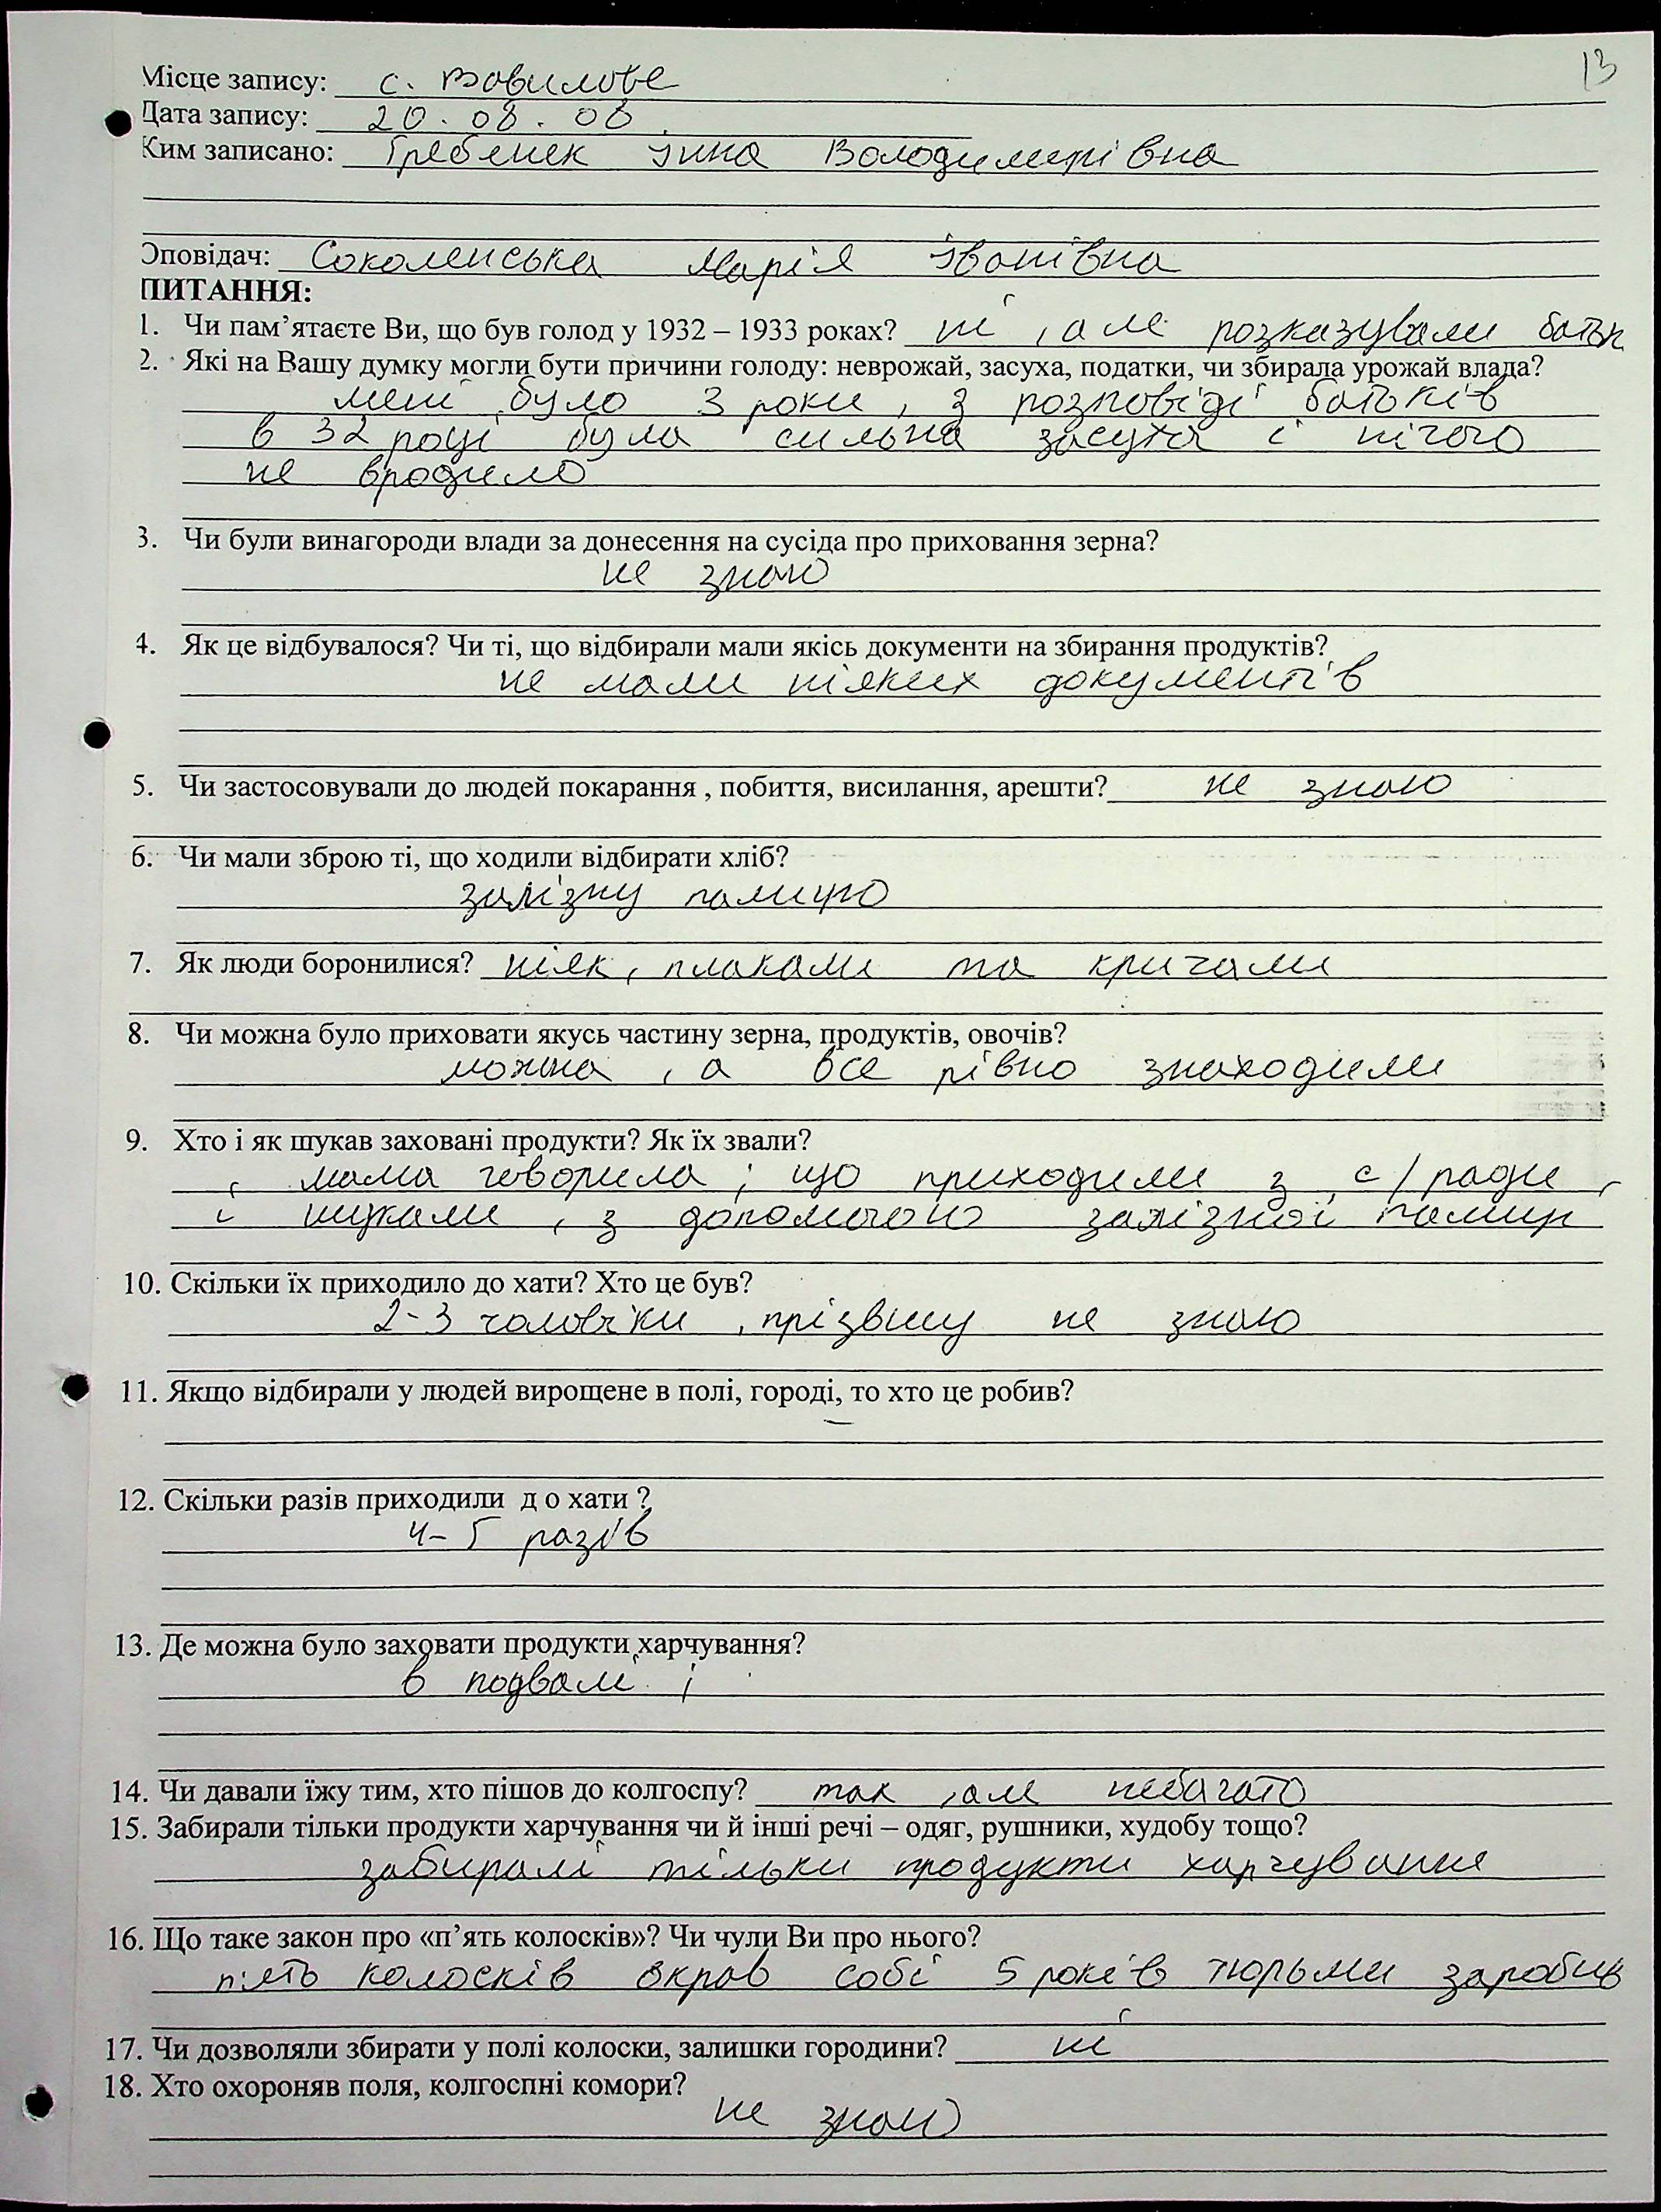 13
Місце запису: с. Вавилове
Дата запису: 20.08.08.
Ким записано: Гребенек Інна Володимирівна
Оповідач: Соколенська Марія Іванівна
ПИТАННЯ:
1. Чи пам’ятаєте Ви, що був голод у 1932 – 1933 роках? ні, але розказували батьк
2. Які на Вашу думку могли бути причини голоду: неврожай, засуха, податки, чи збирала урожай влада?
мені було 3 роки, з розповіді батьків
в 32 році була сильна засуха і нічого
не вродило
3. Чи були винагороди влади за донесення на сусіда про приховання зерна?
не знаю
4. Як це відбувалося? Чи ті, що відбирали мали якісь документи на збирання продуктів?
не мали ніяких документів
5. Чи застосовували до людей покарання , побиття, висилання, арешти? не знаю
6. Чи мали зброю ті, що ходили відбирати хліб?
залізну палицю
7. Як люди боронилися? ніяк, плакали та кричали
8. Чи можна було приховати якусь частину зерна, продуктів, овочів?
можна, а все рівно знаходили
9. Хто і як шукав заховані продукти? Як їх звали?
мама говорила, що приходили з с/ради,
і шукали, з допомогою залізної палиці
10. Скільки їх приходило до хати? Хто це був?
2-3 чоловіки, прізвищ не знаю
11. Якщо відбирали у людей вирощене в полі, городі, то хто це робив?
–
12. Скільки разів приходили д о хати ?
4-5 разів
13. Де можна було заховати продукти харчування?
в подвалі
14. Чи давали їжу тим, хто пішов до колгоспу? так, але небагато
15. Забирали тільки продукти харчування чи й інші речі – одяг, рушники, худобу тощо?
забиралі тільки продукти харчування
16. Що таке закон про «п’ять колосків»? Чи чули Ви про нього?
п'ять колосків вкрав собі 5 років тюрьми заробив
17. Чи дозволяли збирати у полі колоски, залишки городини? ні
18. Хто охороняв поля, колгоспні комори?
не знаю